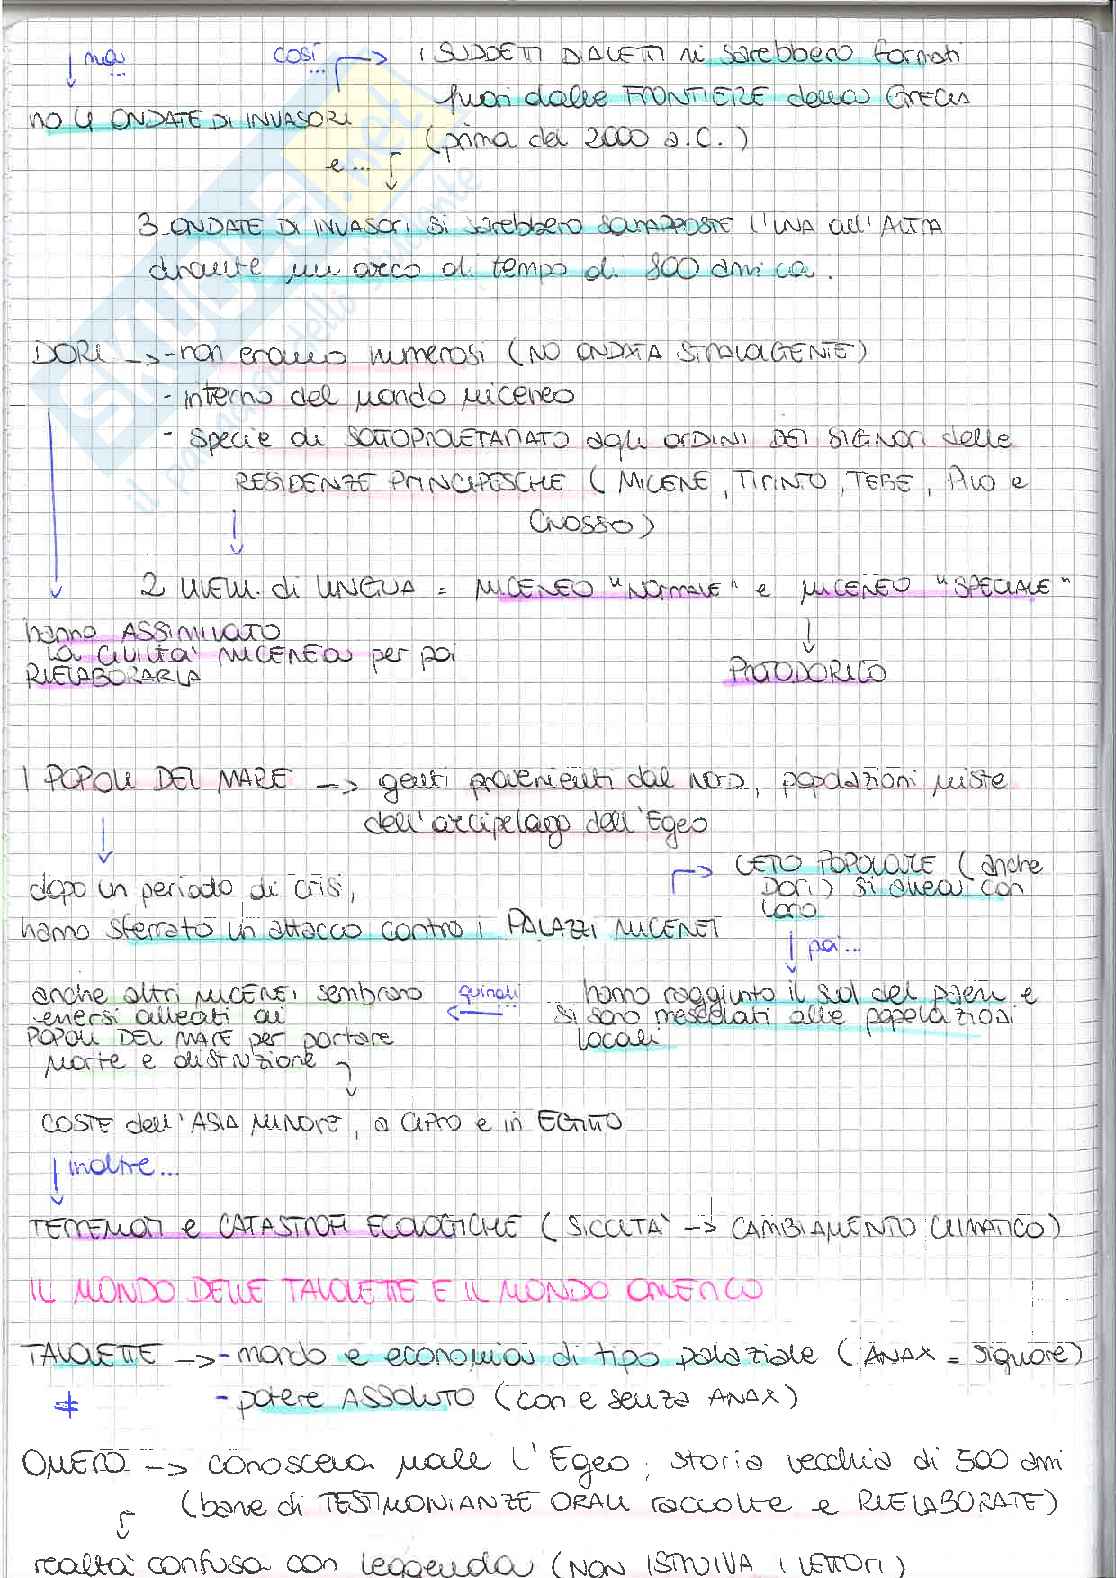 ma
così
...
i SUDDETTI DIALETTI si sarebbero formati
fuori dalle FRONTIERE della GRECIA
no 4 ONDATE DI INVASORI
(prima del 2000 a.C.)
e...
3 ONDATE DI INVASORI si sarebbero SOVRAPPOSTE l'UNA all'ALTRA
durante un arco di tempo di 800 anni ca.
DORI → - non erano numerosi (NO ONDATA STRAVOLGENTE)
- interno del mondo miceneo
- specie di SOTTOPROLETARIATO agli ORDINI DEI SIGNORI delle
RESIDENZE PRINCIPESCHE (MICENE, TIRINTO, TEBE, PILO e
CNOSSO)
2 LIVELLI di LINGUA = MICENEO "NORMALE" e MICENEO "SPECIALE"
hanno ASSIMILATO
LA CIVILTA' MICENEA per poi
RIELABORARLA
PROTODORICO
I POPOLI DEL MARE → genti provenienti dal NORD, popolazioni miste
dell'arcipelago dell'Egeo
CETO POPOLARE (anche
DORI) si allea con
loro
dopo un periodo di crisi,
hanno sferrato un attacco contro i PALAZZI MICENEI
poi...
anche altri MICENEI sembrano
essersi alleati ai
POPOLI DEL MARE per portare
morte e distruzione
quindi
...
hanno raggiunto il sud del paese e
si sono mescolati alle popolazioni
locali
COSTE dell'ASIA MINORE, a CIPRO e in EGITTO
inoltre...
TERREMOTI e CATASTROFI ECOLOGICHE (SICCITA' → CAMBIAMENTO CLIMATICO)
IL MONDO DELLE TAVOLETTE E IL MONDO OMERICO
TAVOLETTE → - mondo e economia di tipo palaziale (ANAX = signore)
≠
- potere ASSOLUTO (con e senza ANAX)
OMERO → conosceva male l'Egeo; storia vecchia di 500 anni
(base di TESTIMONIANZE ORALI raccolte e RIELABORATE)
realtà confusa con leggenda (NON ISTRUIVA I LETTORI)
SKUOLA.net
il paradiso dello studente